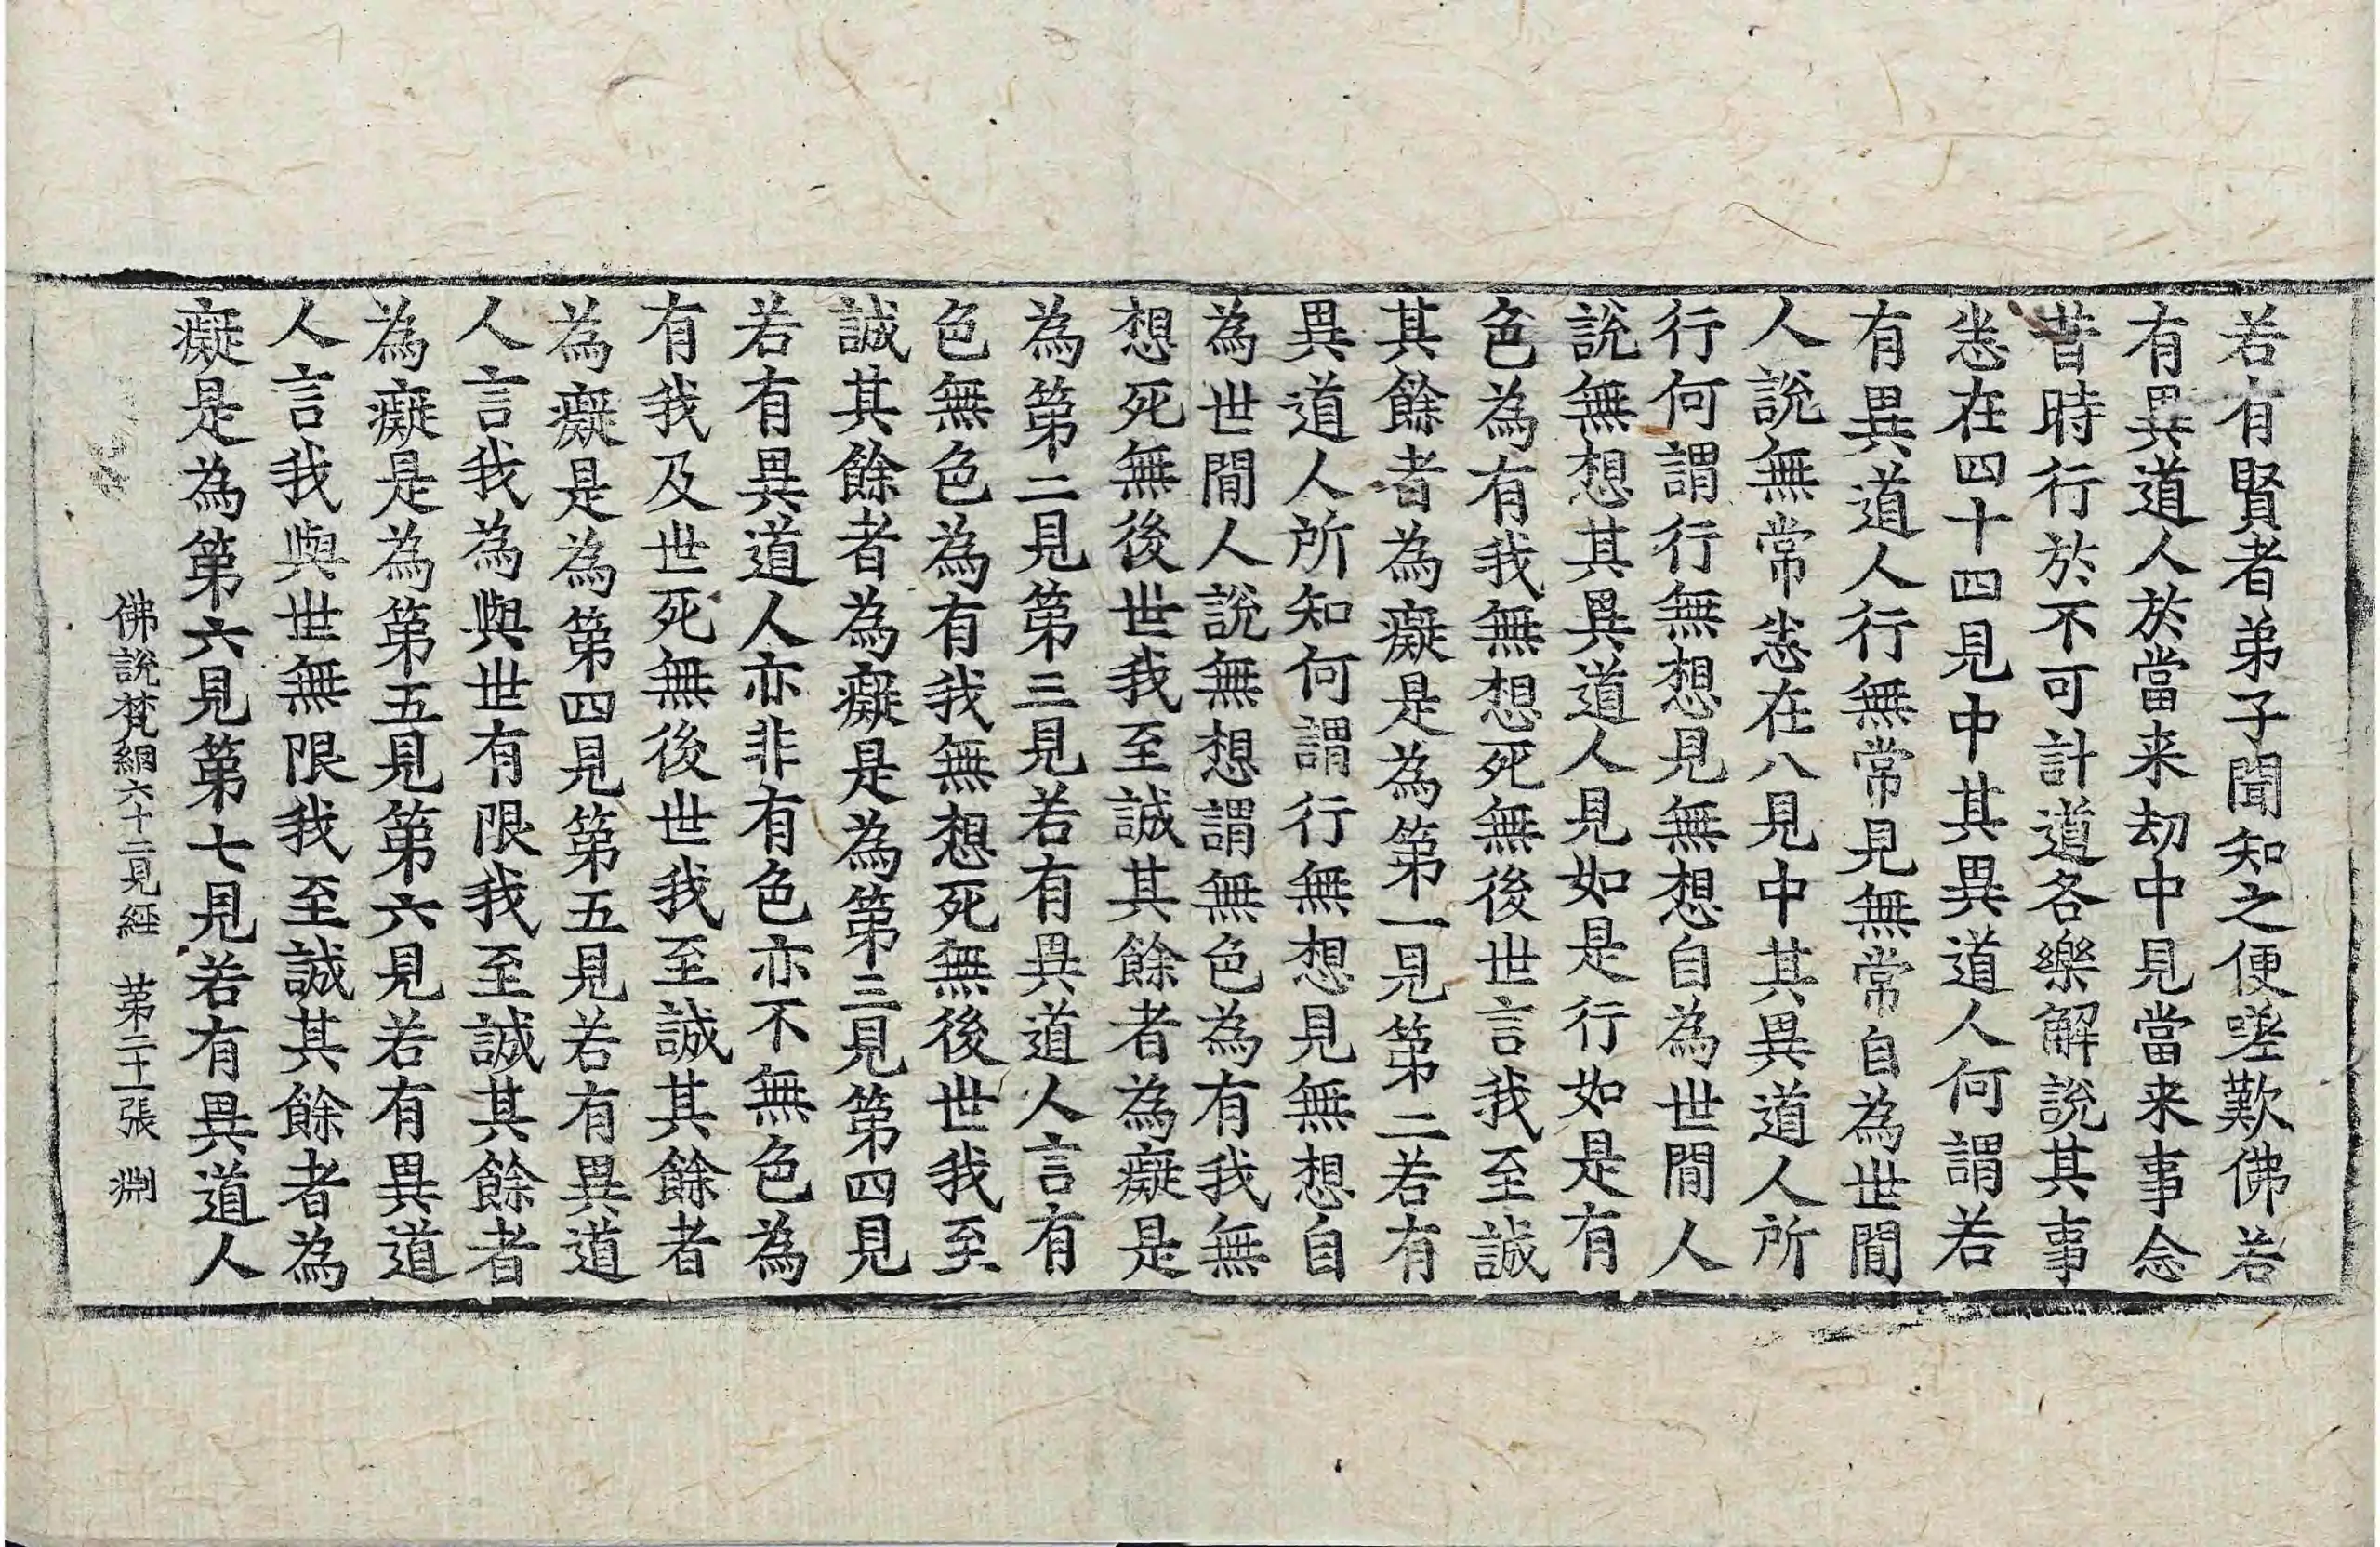 若有賢者弟子聞知之便嗟歎佛若
有異道人於當来劫中見當来事念
昔時行於不可計道各樂解説其事
㤪在四十四見中其異道人何謂若
有異道人行無常見無常自為世間
人說無常㤪在八見中其異道人所
行何謂行無想見無想自為世間人
說無想其異道人見如是行如是有
色為有我無想死無後世言我至誠
其餘者為癡是為第一見第二若有
異道人所知何謂行無想見無想自
為世間人說無想謂無色為有我無
想死無後世我至誠其餘者為癡是
為第二見第三見若有異道人言有
色無色為有我無想死無後世我至
誠其餘者為癡是為第三見第四見
若有異道人亦非有色亦不無色為
有我及世死無後世我至誠其餘者
為癡是為第四見第五見若有異道
人言我為與世有限我至誠其餘者
為癡是為第五見第六見若有異道
人言我與世無限我至誠其餘者為
癡是為第六見第七見若有異道人
佛說梵網六十二見經 第二十一張 淵